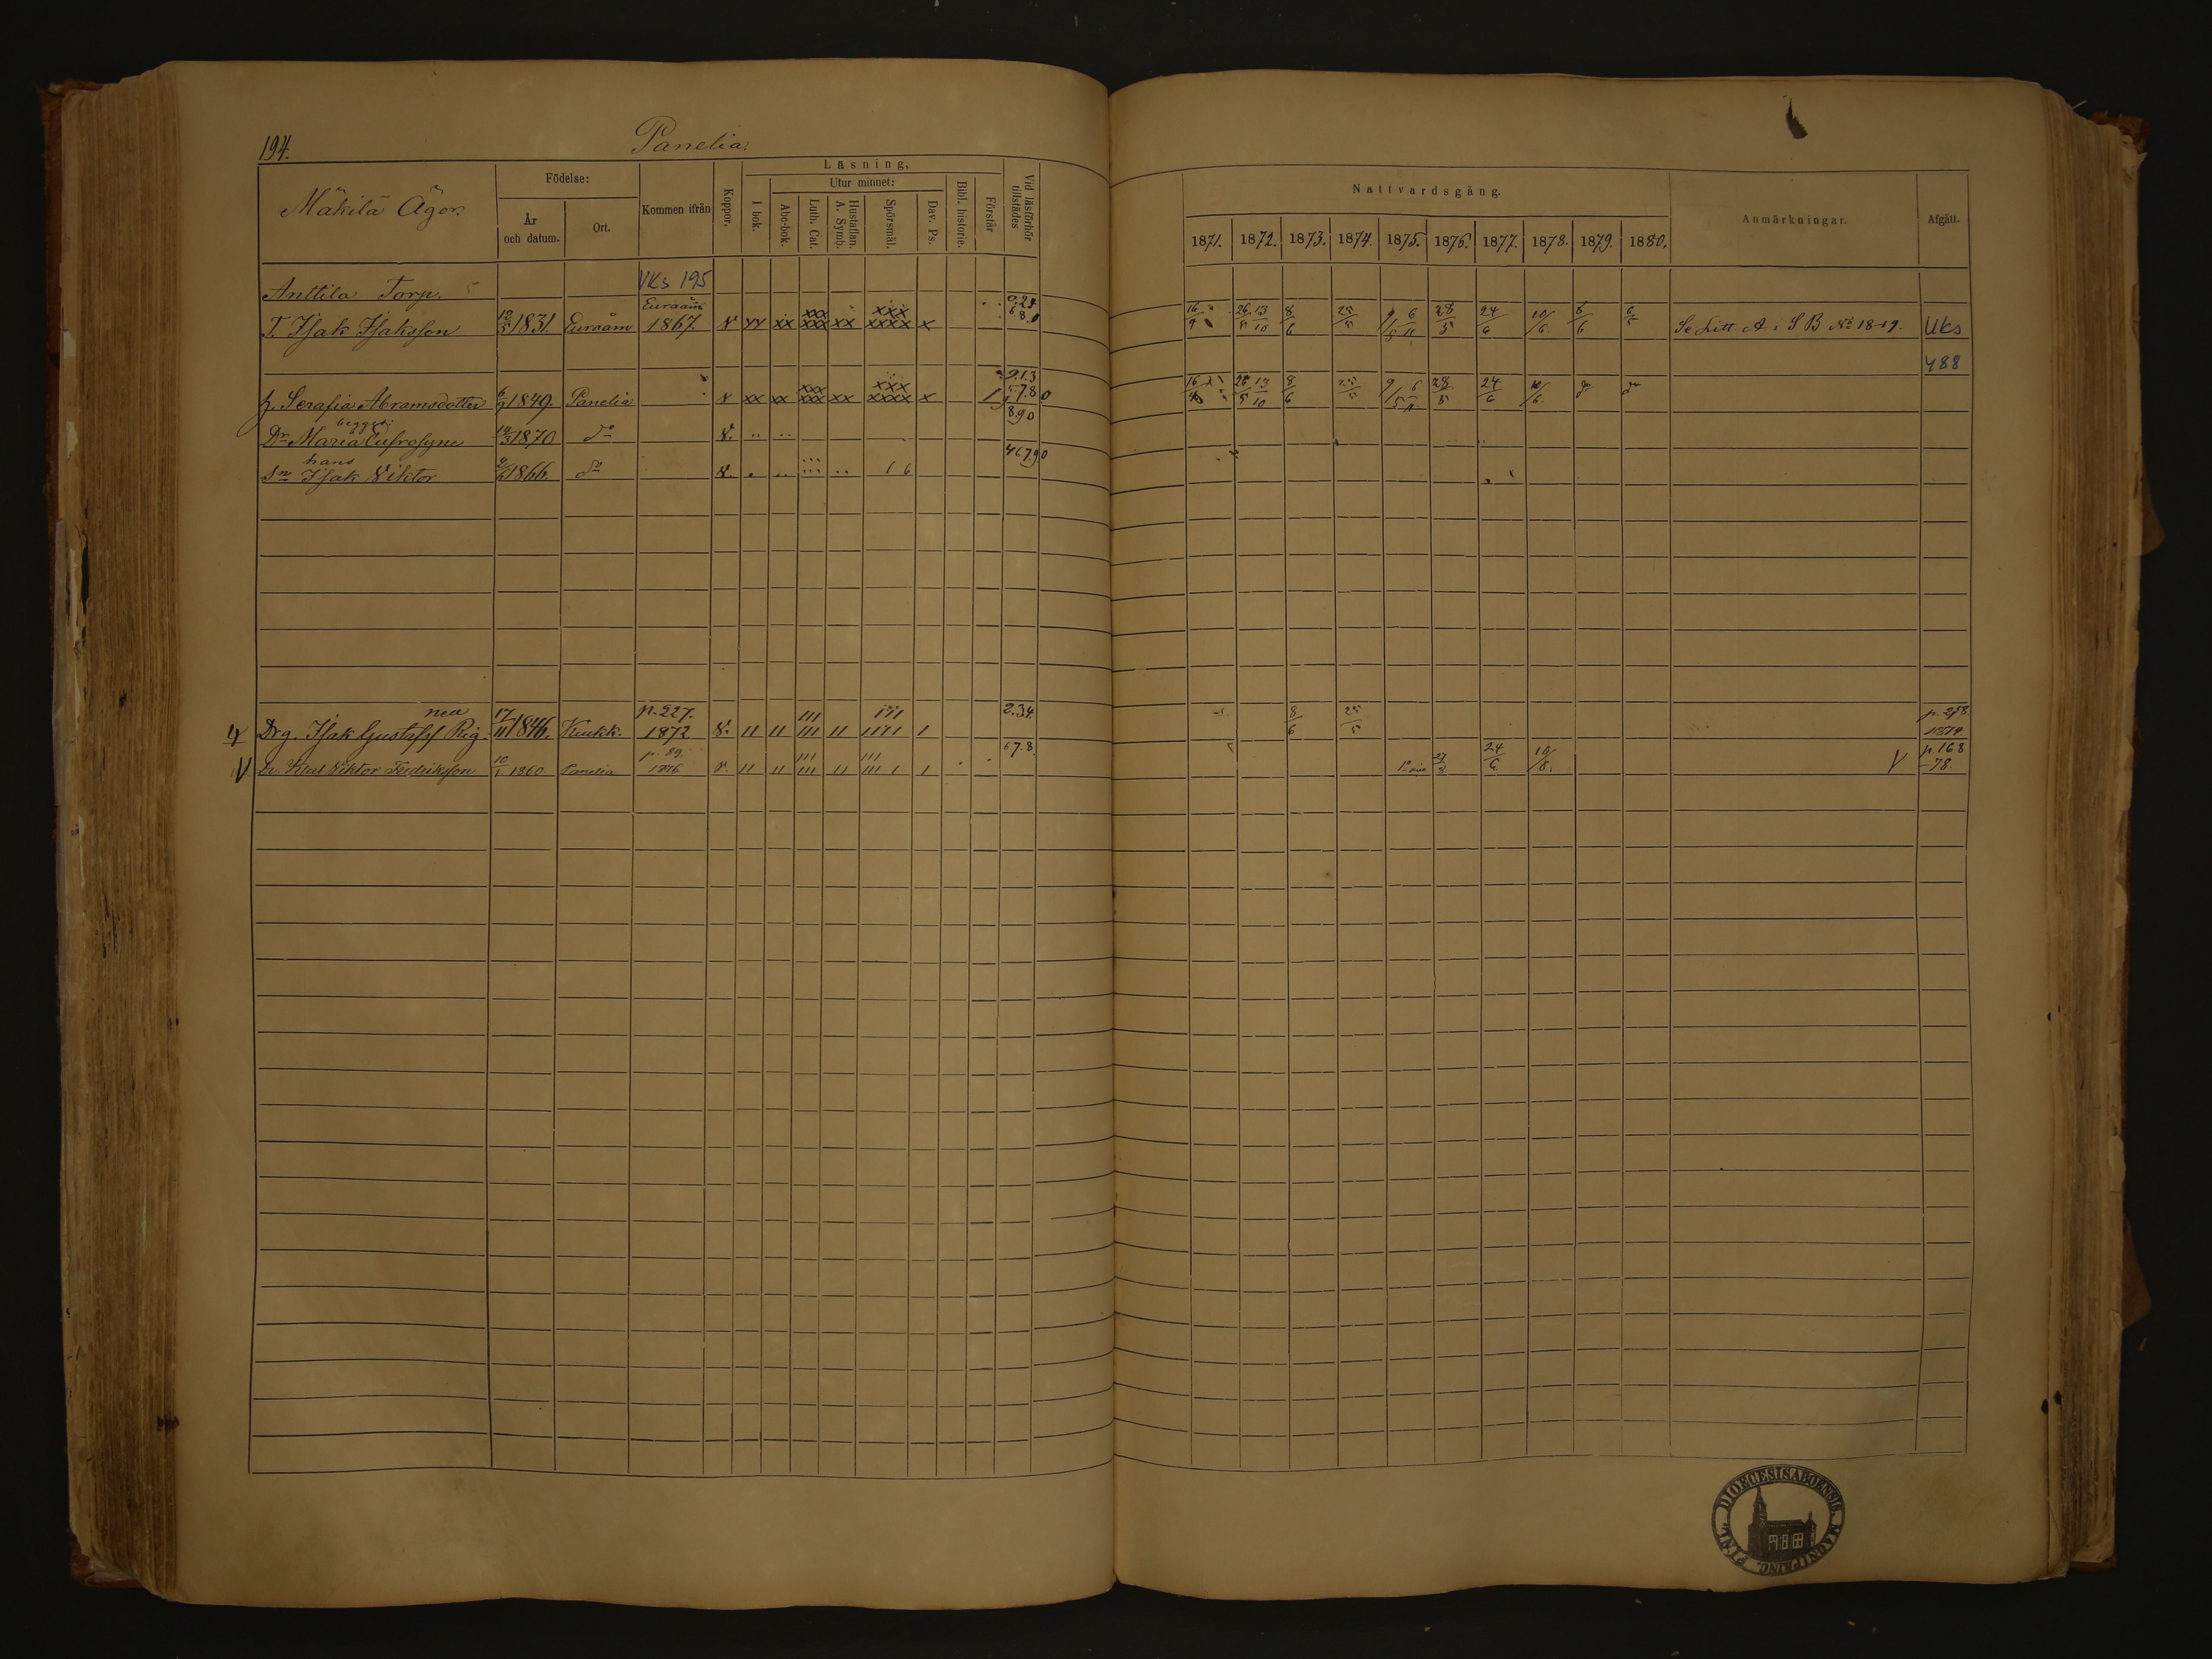 194.
Panelia.
Mäkilä Ägor.
Födelse:
År
och datum.
Ort.
Kommen ifrån
Koppor.
Läsning,
I bok.
Utur minnet:
Abc-bok.
Luth. Cat.
Hustaflan.
A. Symb.
Spörsmål.
Dav. Ps.
Bibl. historie.
Förstår
Vid läsförhör
tillstädes
Nattvardsgång.
1871. 1872. 1873. 1874. 1875. 1876. 1877. 1878. 1879. 1880.
Anmärkningar.
Afgått.
Anttila Torp. VKs 195
Euraåm
T. Isak Isaksson 12/5 1831. Euraåm 1867. x xx xx xxx xxx xx xxx xxxx x 16/9 26/5 13/10 8/6 25/5 28/5 24/6 10/6 8/6 6/5 Se Litt A i S B No 18-19. Uks
488
h. Serafia Abramsdotter 6/9 1849. Panelia x xx xx xxx xxx xx xxx xxxx x 5.7.8.0 26/5 13/10 8/6 25/5 28/5 24/6 10/6
8.9.0
begges
Dr Maria Eufrosyne 14/3 1870 do
hans
Sn Isak Viktor 1866. do
nea
Drg. Isak Gustafsf Rig. 17/11 1846. Kiukk. p. 227. 1872 11 11 111 111 11 111 1111 1 2.3.4. 8/6 25/5 p. 258. 1879.
V Dr. Karl Viktor Fredriksson 10/1 1860 Panelia p. 89. 1876 11 11 111 111 11 111 111 1 1 6.7.8. 24/6 10/6. V p. 168 -78.
FINL. DIOECESIS ABOENSIS. MAGNI PRINC.